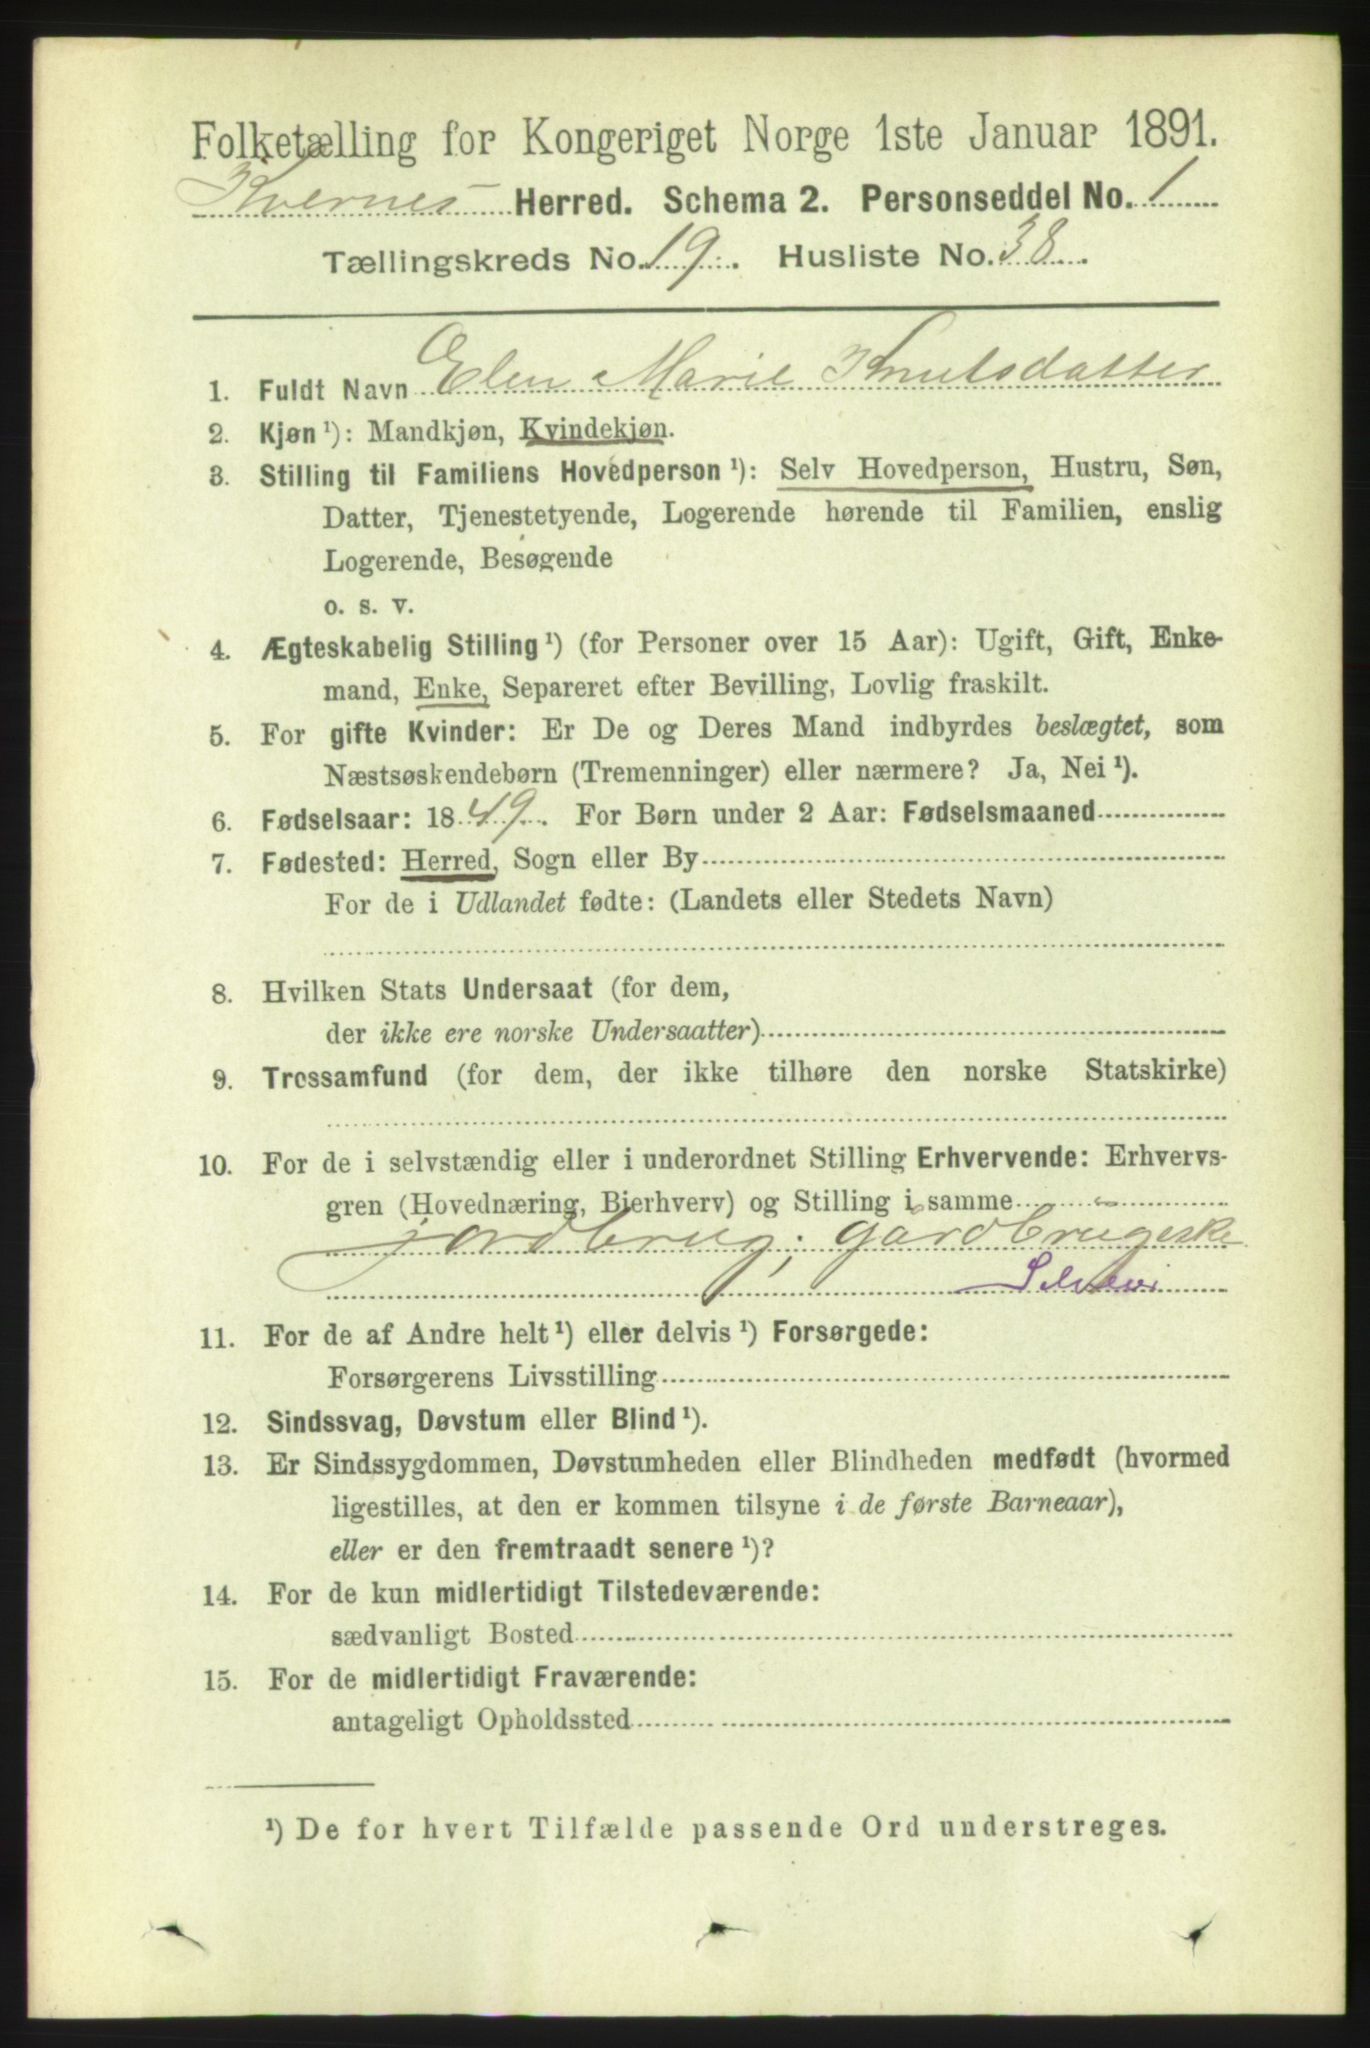 Folketælling for Kongeriget Norge 1ste Januar 1891.
Kvernes Herred. Schema 2. Personseddel No. 1
Tællingskreds No. 19. Husliste No. 38.
1. Fuldt Navn Elen Marie Knutsdatter
2. Kjøn ¹): Mandkjøn, Kvindekjøn.
3. Stilling til Familiens Hovedperson ¹): Selv Hovedperson, Hustru, Søn,
Datter, Tjenestetyende, Logerende hørende til Familien, enslig
Logerende, Besøgende
o. s. v.
4. Ægteskabelig Stilling ¹) (for Personer over 15 Aar): Ugift, Gift, Enke-
mand, Enke, Separeret efter Bevilling, Lovlig fraskilt.
5. For gifte Kvinder: Er De og Deres Mand indbyrdes beslægtet, som
Næstsøskendebørn (Tremenninger) eller nærmere? Ja, Nei ¹).
6. Fødselsaar: 1849. For Børn under 2 Aar: Fødselsmaaned
7. Fødested: Herred, Sogn eller By
For de i Udlandet fødte: (Landets eller Stedets Navn)
8. Hvilken Stats Undersaat (for dem,
der ikke ere norske Undersaatter)
9. Trossamfund (for dem, der ikke tilhøre den norske Statskirke)
10. For de i selvstændig eller i underordnet Stilling Erhvervende: Erhvervs-
gren (Hovednæring, Bierhverv) og Stilling i samme
Jordbrug; gårdbrugerske
Selveier
11. For de af Andre helt ¹) eller delvis ¹) Forsørgede:
Forsørgerens Livsstilling
12. Sindssvag, Døvstum eller Blind ¹).
13. Er Sindssygdommen, Døvstumheden eller Blindheden medfødt (hvormed
ligestilles, at den er kommen tilsyne i de første Barneaar),
eller er den fremtraadt senere ¹)?
14. For de kun midlertidigt Tilstedeværende:
sædvanligt Bosted
15. For de midlertidigt Fraværende:
antageligt Opholdssted
¹) De for hvert Tilfælde passende Ord understreges.